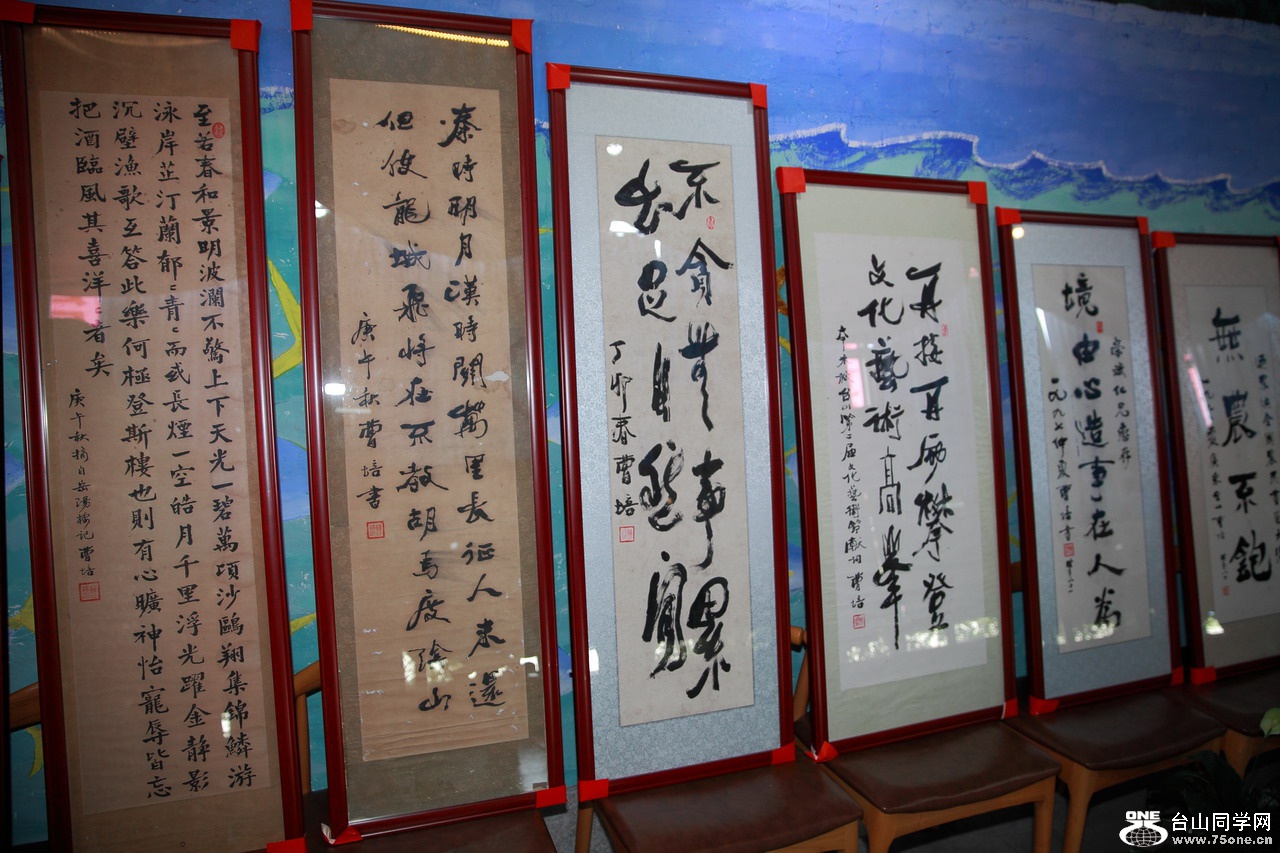 至若春和景明波瀾不驚上下天光一碧萬頃沙鷗翔集錦鱗游
泳岸芷汀蘭郁〻青〻而或長煙一空皓月千里浮光躍金靜影
沉璧漁歌互答此樂何極登斯樓也則有心曠神怡寵辱皆忘
把酒臨風其喜洋〻者矣
庚午秋摘自岳陽樓記曹培
秦時明月漢時關萬里長征人未還
但使龍城飛將在不教胡馬度陰山
庚午秋曹培書
不貪無事累
知足自然寬
丁卯春曹培
再接再厲攀登
文化藝術高峯
台山第二届文化藝術節獻詞曹培
仁兄惠存
境由心造事在人為
一九九七仲夏曹培書
無農不飽
ONE
台山同学网
www.75one.cn